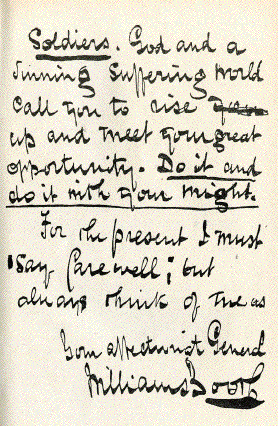 Soldiers. God and a
sinning suffering world
call you to rise
up and meet your great
opportunity. Do it and
do it with your might.
For the present I must
say farewell; but
always think of me as
Your affectionate General
William Booth